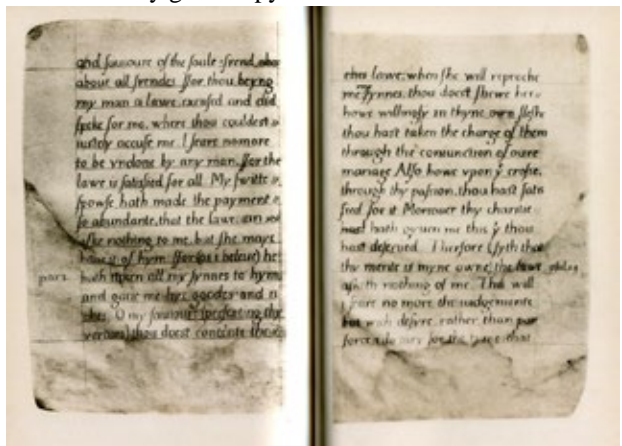 and sauioure of the soule, frend aboue
aboue all frendes. ffor thou beyng
my man a lawe, excused and did
speke for me, where thou couldest
iustely accuse me. I feare nomore
to be vndone by any man, ffor the
lawe is satisfied for all. My switte
spowse hath made the payment
so abundante, that the lawe can not
aske nothing to me, but she maye
haue it of hym. ffor (as i beleue) he
part. hath taken all my synnes to hym
and gaue me his goodes and
O my sauioure
vertues) thou doest contente the
thes lawe, when she will reproche
me synnes, thou doest shewe her
howe willingly in thyne own fleshe
thou hast taken the charge of them
through the coniunction of oure
mariage Also howe vpon yͤ crosse,
through thy passion, thou hast satis
fied for it Moreouer thy charitie
hath gyuen me this yͭ thou
hast deserued. Therfore (syth that
thy merite is myne owne) the lawe
nothing of me. Than will
I feare no more the iudgemente
but with desyre, rather than par
force, do tary for the that